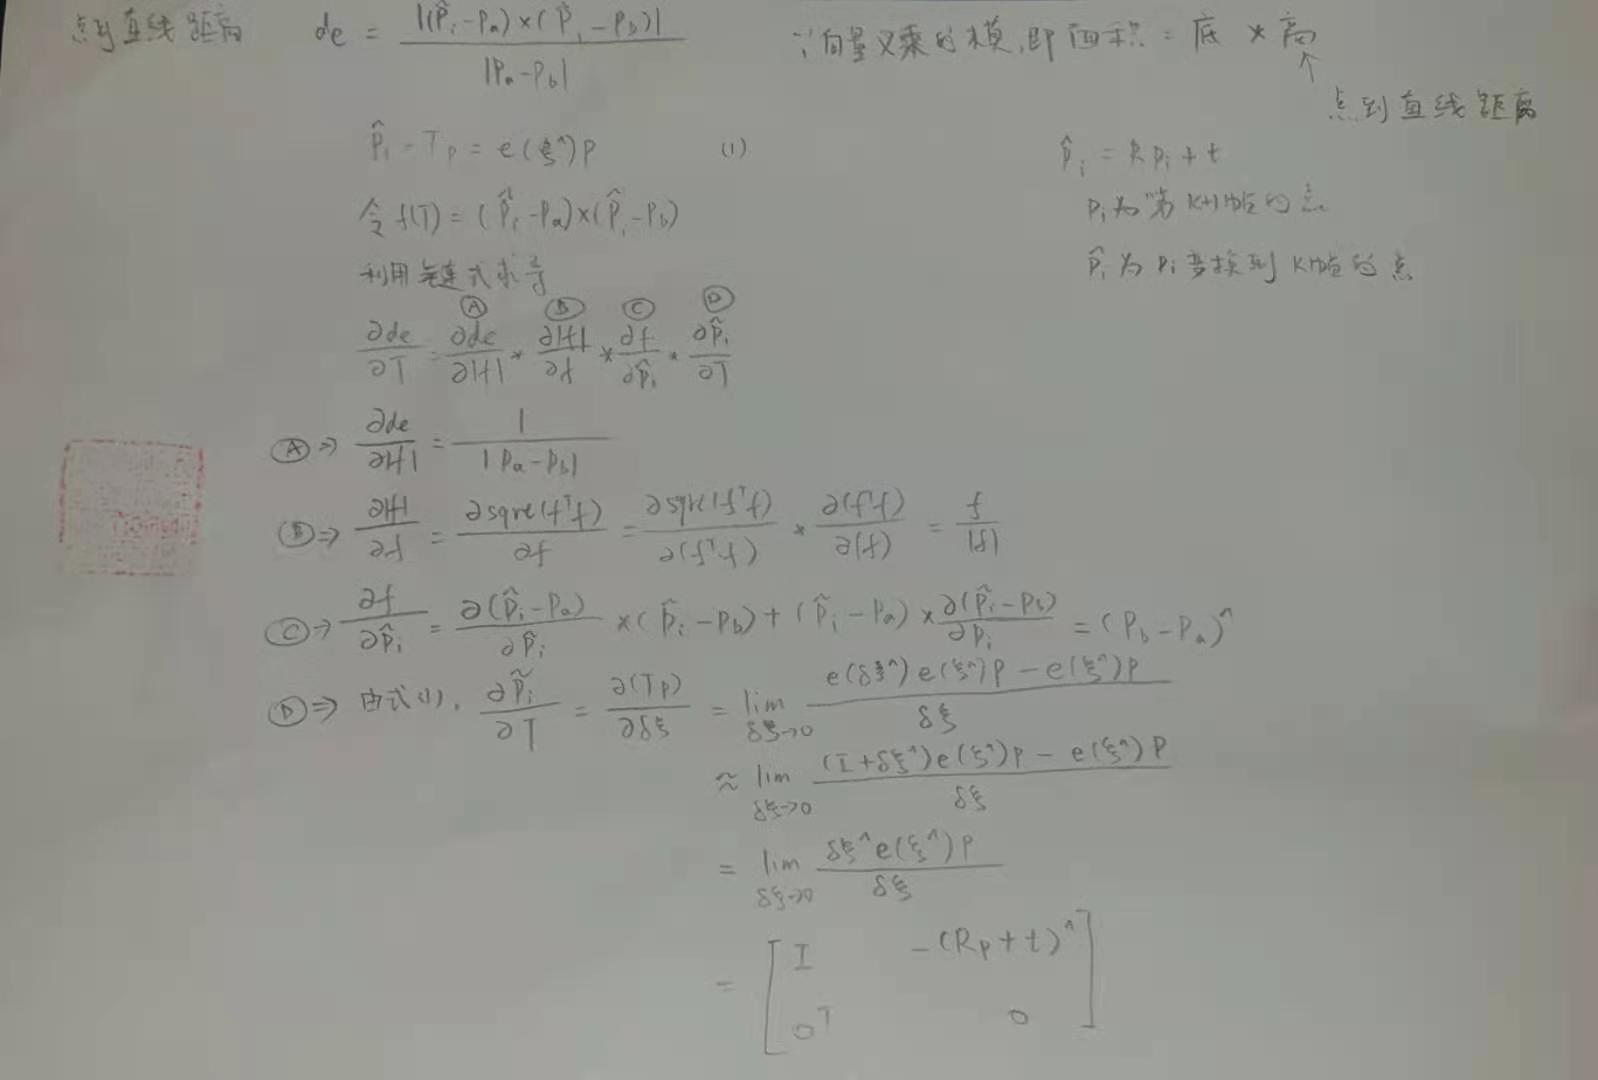 点到直线距离 de = |(p̂ᵢ-pₐ)×(p̂ᵢ-p_b)| / |pₐ-p_b| ∵向量叉乘的模,即面积 = 底 * 高
↑
点到直线距离
p̂ᵢ = Tp = e(ξ^)p (1) p̂ᵢ = Rpᵢ + t
令 f(T) = (p̂ᵢ-pₐ)×(p̂ᵢ-p_b) pᵢ为第k+1帧的点
利用链式求导 p̂ᵢ为pᵢ变换到k帧的点
Ⓐ Ⓑ Ⓒ Ⓓ
∂de/∂T = ∂de/∂|f| * ∂|f|/∂f * ∂f/∂p̂ᵢ * ∂p̂ᵢ/∂T
Ⓐ⇒ ∂de/∂|f| = 1/|pₐ-p_b|
Ⓑ⇒ ∂|f|/∂f = ∂sqre(fᵀf)/∂f = ∂sqre(fᵀf)/∂(fᵀf) * ∂(fᵀf)/∂(f) = f/|f|
Ⓒ⇒ ∂f/∂p̂ᵢ = ∂(p̂ᵢ-pₐ)/∂p̂ᵢ ×(p̂ᵢ-p_b)+(p̂ᵢ-pₐ)× ∂(p̂ᵢ-p_b)/∂pᵢ = (p_b-pₐ)^
Ⓓ⇒ 由式(1), ∂p̃ᵢ/∂T = ∂(Tp)/∂δξ = lim δξ→0 (e(δξ^)e(ξ^)p - e(ξ^)p)/δξ
≈ lim δξ→0 ((I+δξ^)e(ξ^)p - e(ξ^)p)/δξ
= lim δξ→0 δξ^e(ξ^)p/δξ
= [ I -(Rp+t)^
0ᵀ 0 ]